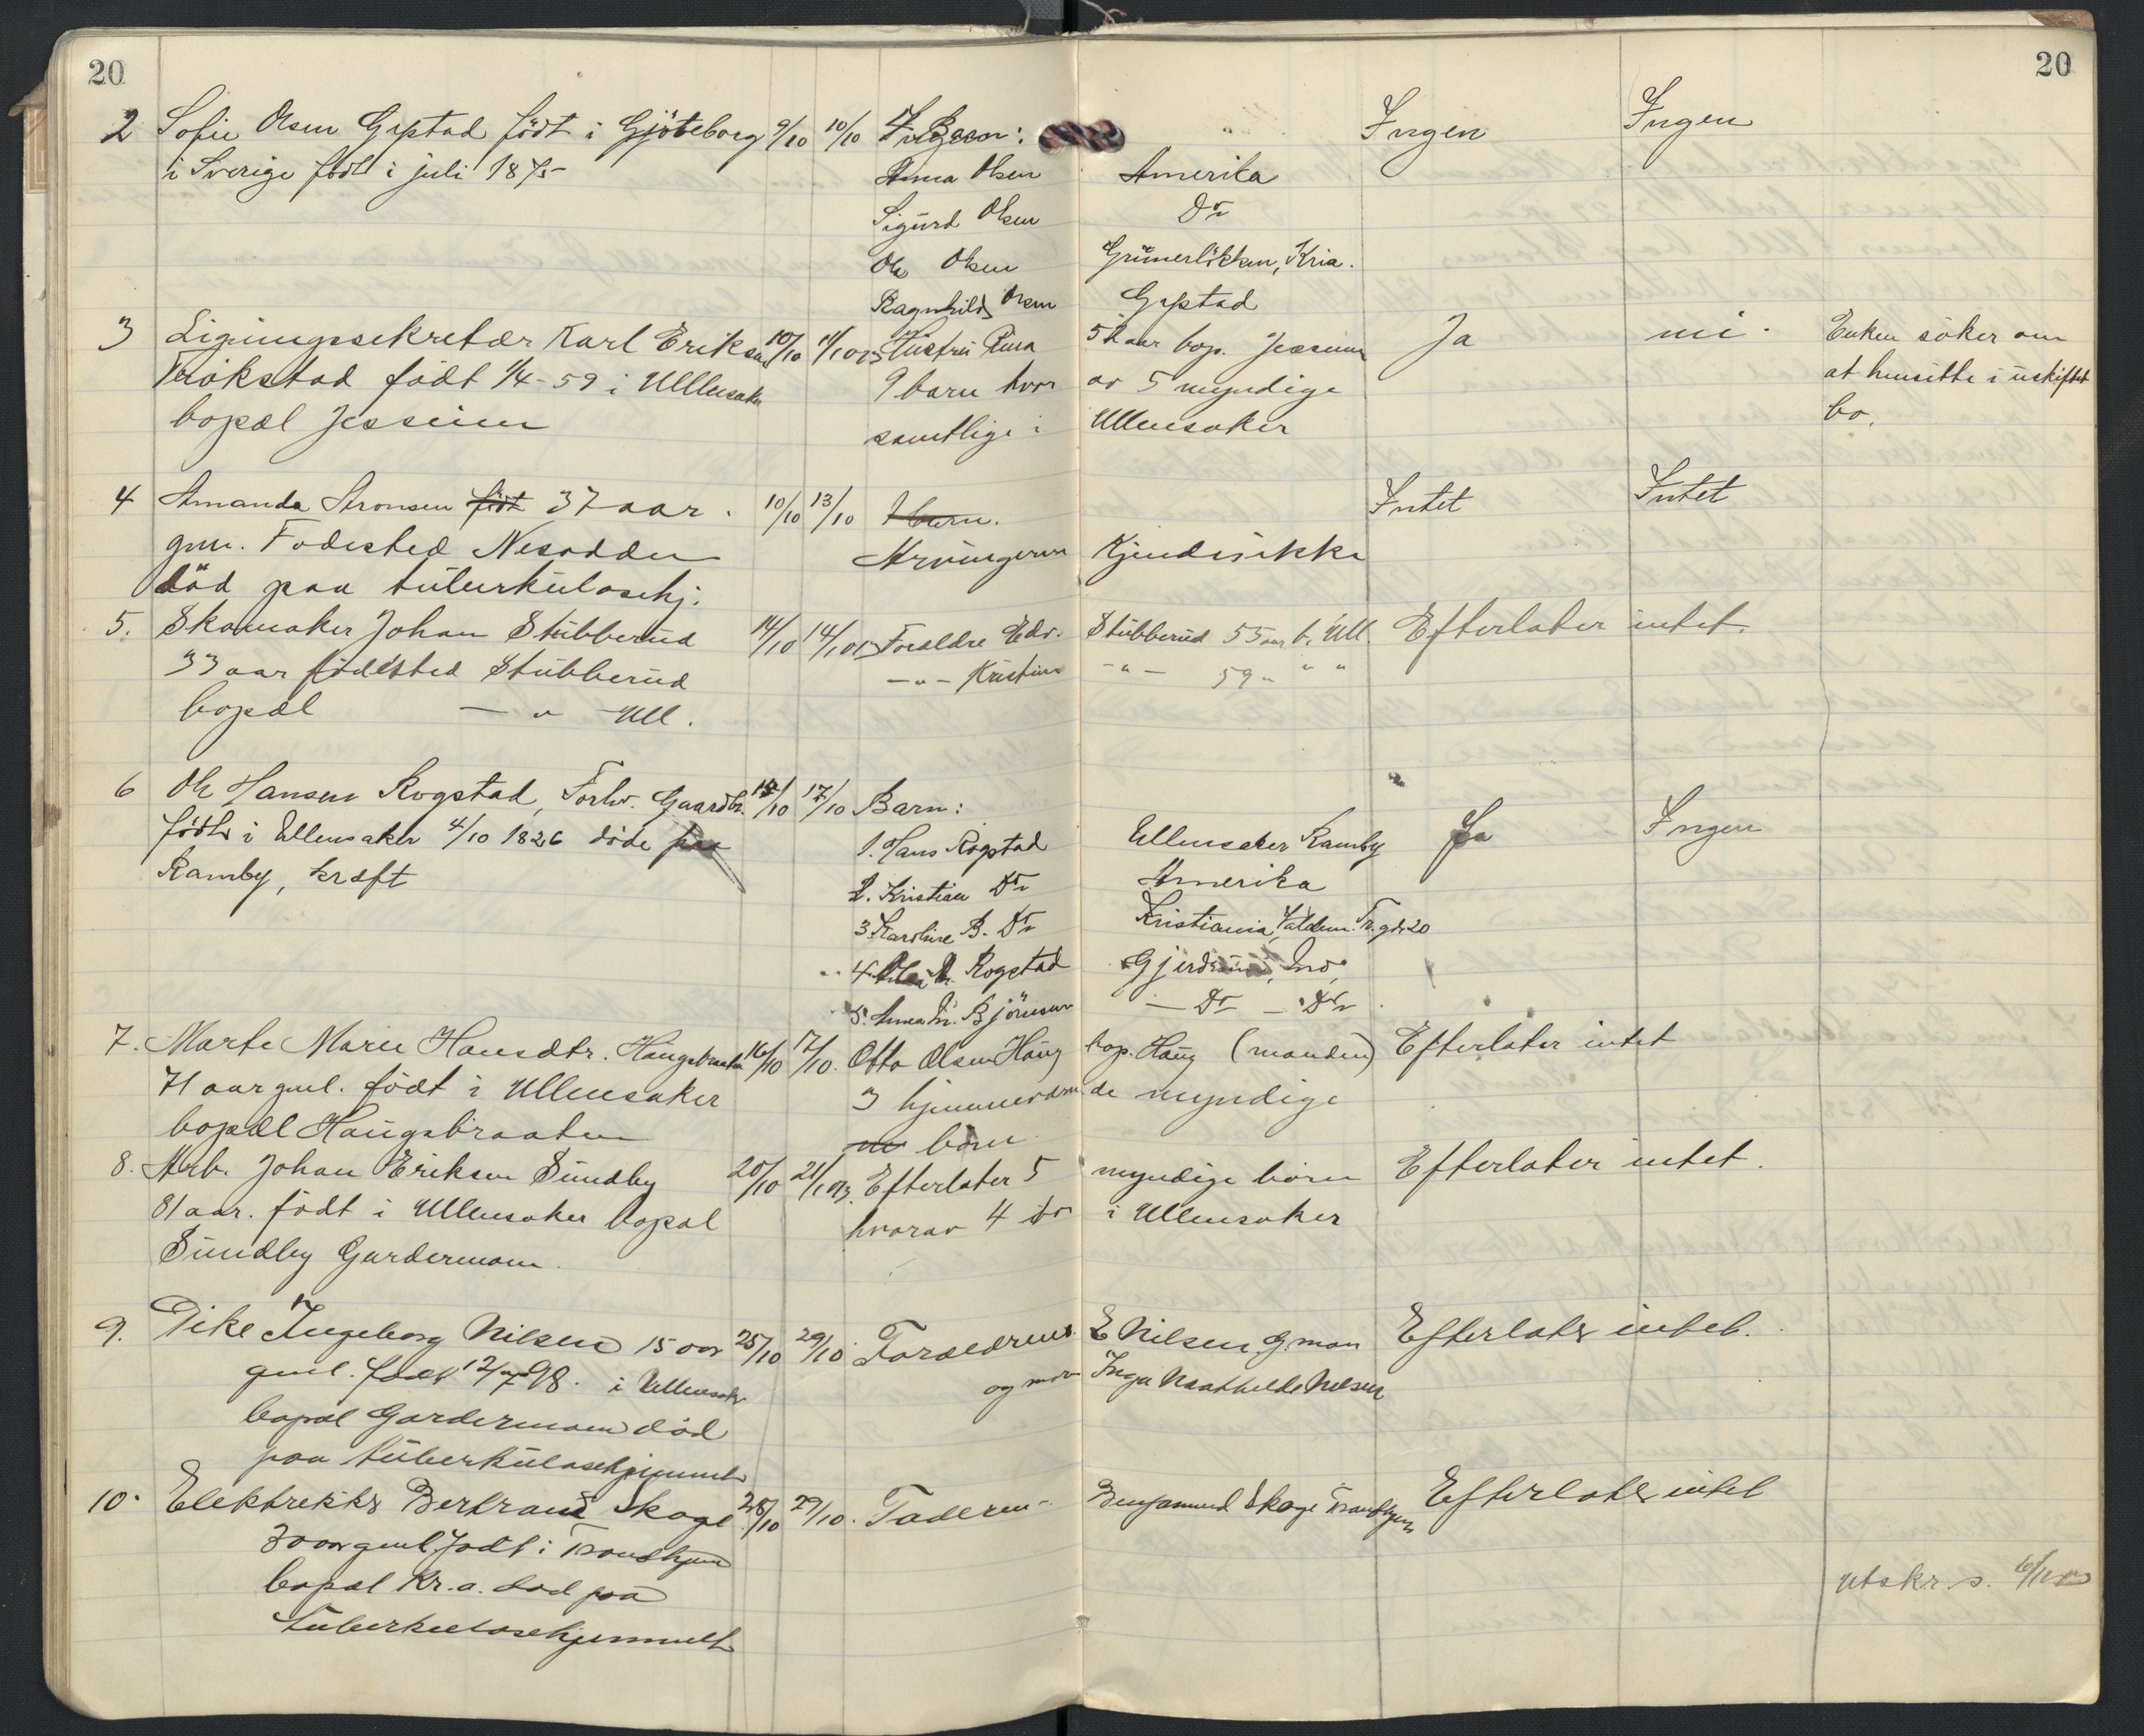 20 20
2 Sofie Olsen Grpstad födt i Gjöteborg 9/10 10/10 Barn: Ingen Ingen
i Sverige födt i juli 1875 Anna Olsen Amerika
Sigurd Olsen Do
Ole Olsen Grünerlökken, Kria.
Ragnhild Olsen Grpstad
3 Ligningssekretær Karl Eriksen 10/10 11/10 Hustru 52 aar bop. Jessum Ja nei. Enken söker om
Trökstad födt 1/4-59 i Ullensaker 9 barn hvor av 5 myndige at hensitte i uskiftet
bopæl Jesseim samtlige i Ullensaker bo.
4 Amanda Aronsen födt 37 aar. 10/10 13/10 Intet Intet
gml. Fodested Nesodden Arvingerne Kjendes ikke
död paa tuberkulosehj.
5. Skomaker Johan Stubberud 14/10 14/10 Foreldre Edv. Stubberud 55 aar b. Ull. Efterlater intet.
33 aar födested Stubberud —"— Kristine —"— 59 " " "
bopæl — " — Ull.
6 Ole Hansen Rogstad, Forhv. Gaardbr. /10 17/10 Barn:
födt i Ullensaker 4/10 1826 döde paa 1. Hans Rogstad Ullensaker Ramby Ja Ingen
Ramby, kræft 2. Kristian Do Amerika
3 Karoline B. Do Kristiania, Valdem. Tr. gd. 20
4 Rogstad Gjerdrum, Ind.
5. Anna M. Björnsen — Do — Do
7. Marte Marie Hansdtr. Haugsbraaten 16/10 17/10. Otto Olsen Haug bop. Haug (manden) Efterlater intet
71 aar gml. födt i Ullensaker 3 hjemmeværende myndige
bopæl Haugsbraaten börn
8. Arb. Johan Eriksen Sundby 20/10 21/10 13. Efterlater 5 myndige börn Efterlater intet.
81 aar. födt i Ullensaker bopæl hvorav 4 i Ullensaker
Sundby Gardermoen.
9. Pike Ingeborg Nilsen 15 aar 25/10 29/10 Foreldrene E Nilsen G.moen Efterlater intet.
gml. födt 12/7 98. i Ullensaker og mor Inga Maathilde Nilsen
bopæl Gardermoen död
paa tuberkulosehjemmet
10. Elektrikker Bertrand Skage 28/10 29/10. Faderen - Skage Trondhjem Efterlater intet
30 aar gml. födt i Trondhjem
bopæl Kr.a. död paa utskr. s. 6/11
tuberkulosehjemmet